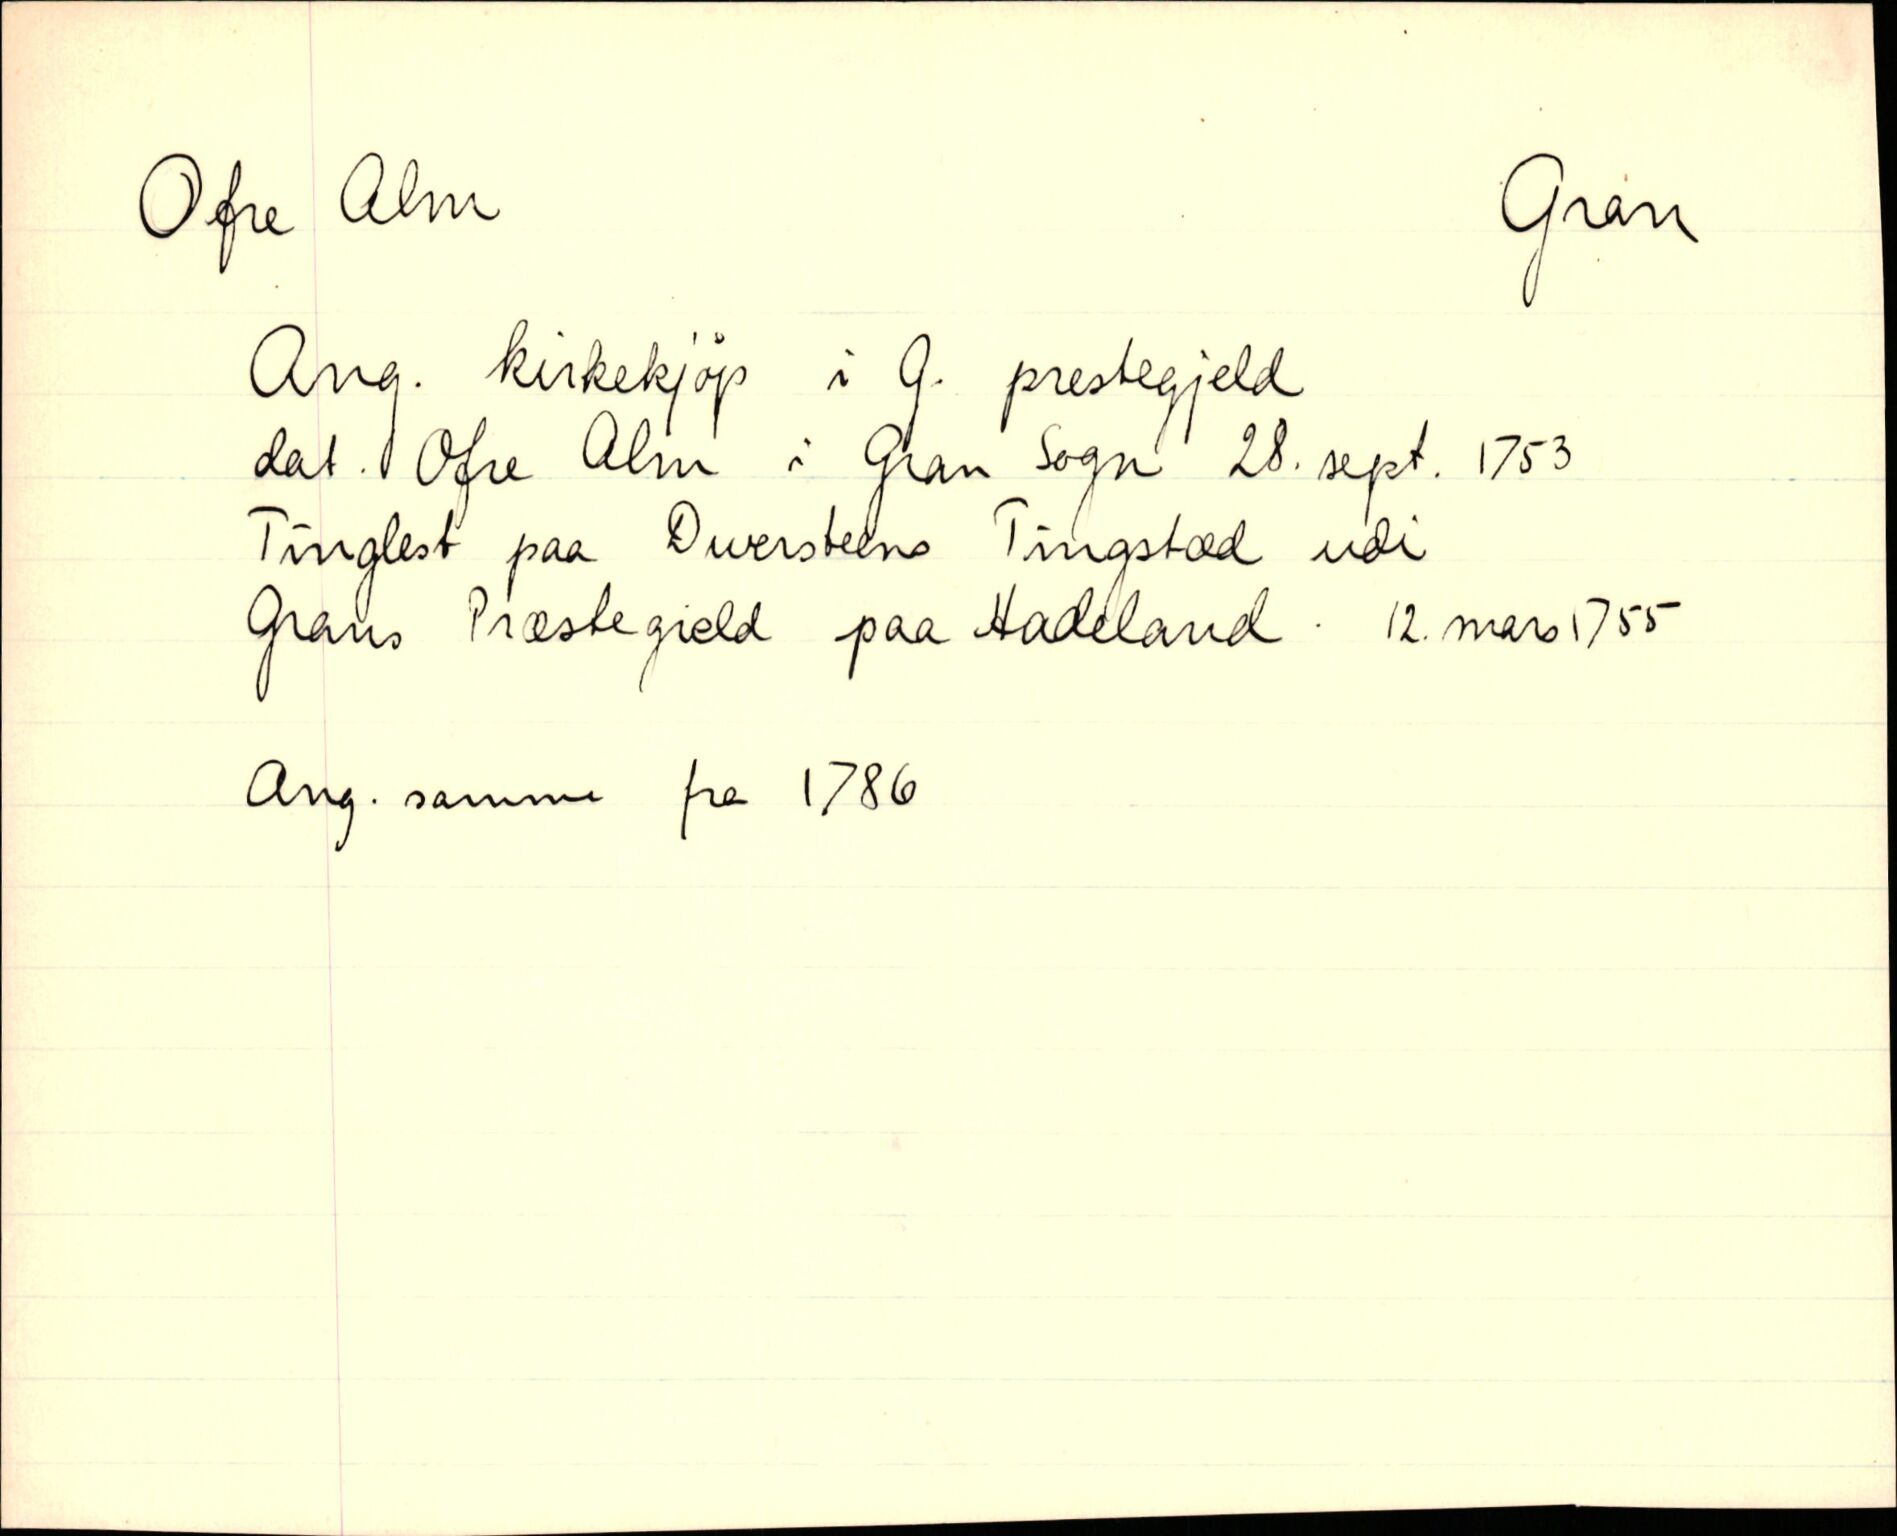 Ofre Alm Gran
Ang. kirkekjøp i G. prestegjeld
dat. Ofre Alm i Gran Sogn 28. sept. 1753
Tinglest paa Dwersteens Tingstæd udi
Grans Præstegield paa Hadeland. 12. mars 1755
Ang. samme fra 1786